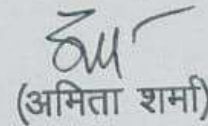 (अमिता शर्मा)